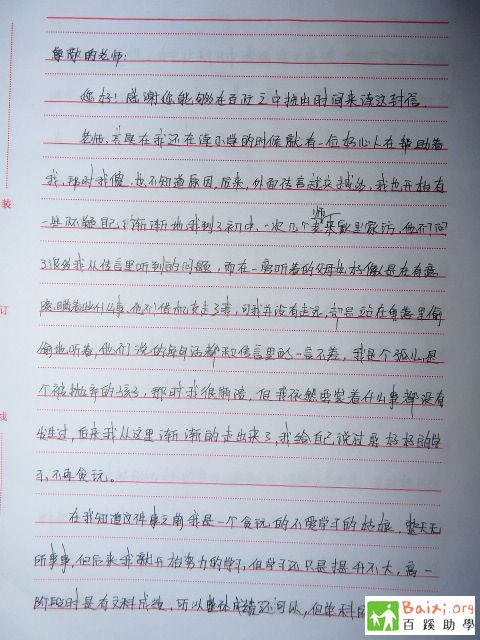 尊敬的老师:
您好！感谢您能够在百忙之中抽出时间来读这封信。
老师，其实在我还在读小学的时候就有一位好心人在帮助着
我，那时我傻，也不知道原因，后来，外面传言越来越多，我也开始有
一些怀疑自己，渐渐地我到了初中，一次几个老师来家里家访，他们问
了很多我从传言里听到的问题，而在一旁听着的父母好像是在有意
隐瞒着些什么事，他们借机支走了我，可我并没有走远，却是站在角落里偷
偷地听着，他们说的每句话都和传言里的一言不差，我是个孤儿，是
个被抛弃的孩子，那时我很懊恼，但我依然要装着什么事都没有
发生过，后来我从这里渐渐的走出来了，我给自己说过要好好的学
习，不再贪玩。
在我知道这件事之前我是一个贪玩的不爱学习的姑娘，整天无
所事事，但后来我就开始努力的学习，但学习还只是提升不大，高一
阶段时是有文科成绩，所以整体成绩还可以，但单科
装
订
线
Baixi.org
百蹊助學